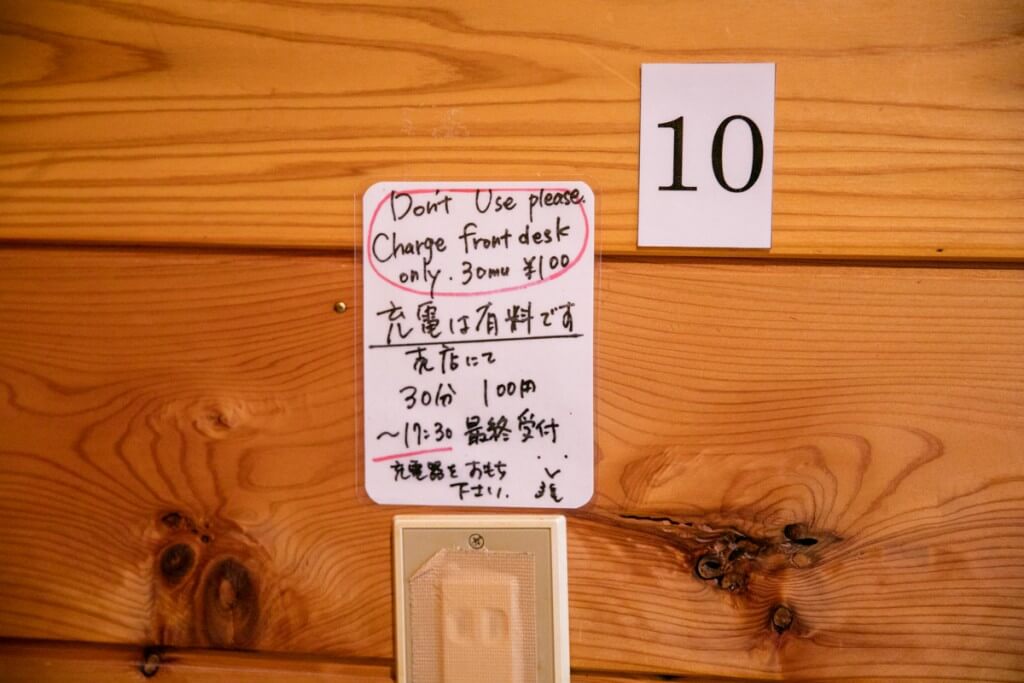 10
Don't Use please.
Charge front desk
only. 30mu ¥100
充電は有料です
売店にて
30分 100円
～17:30 最終受付
充電器をおもち
下さい.